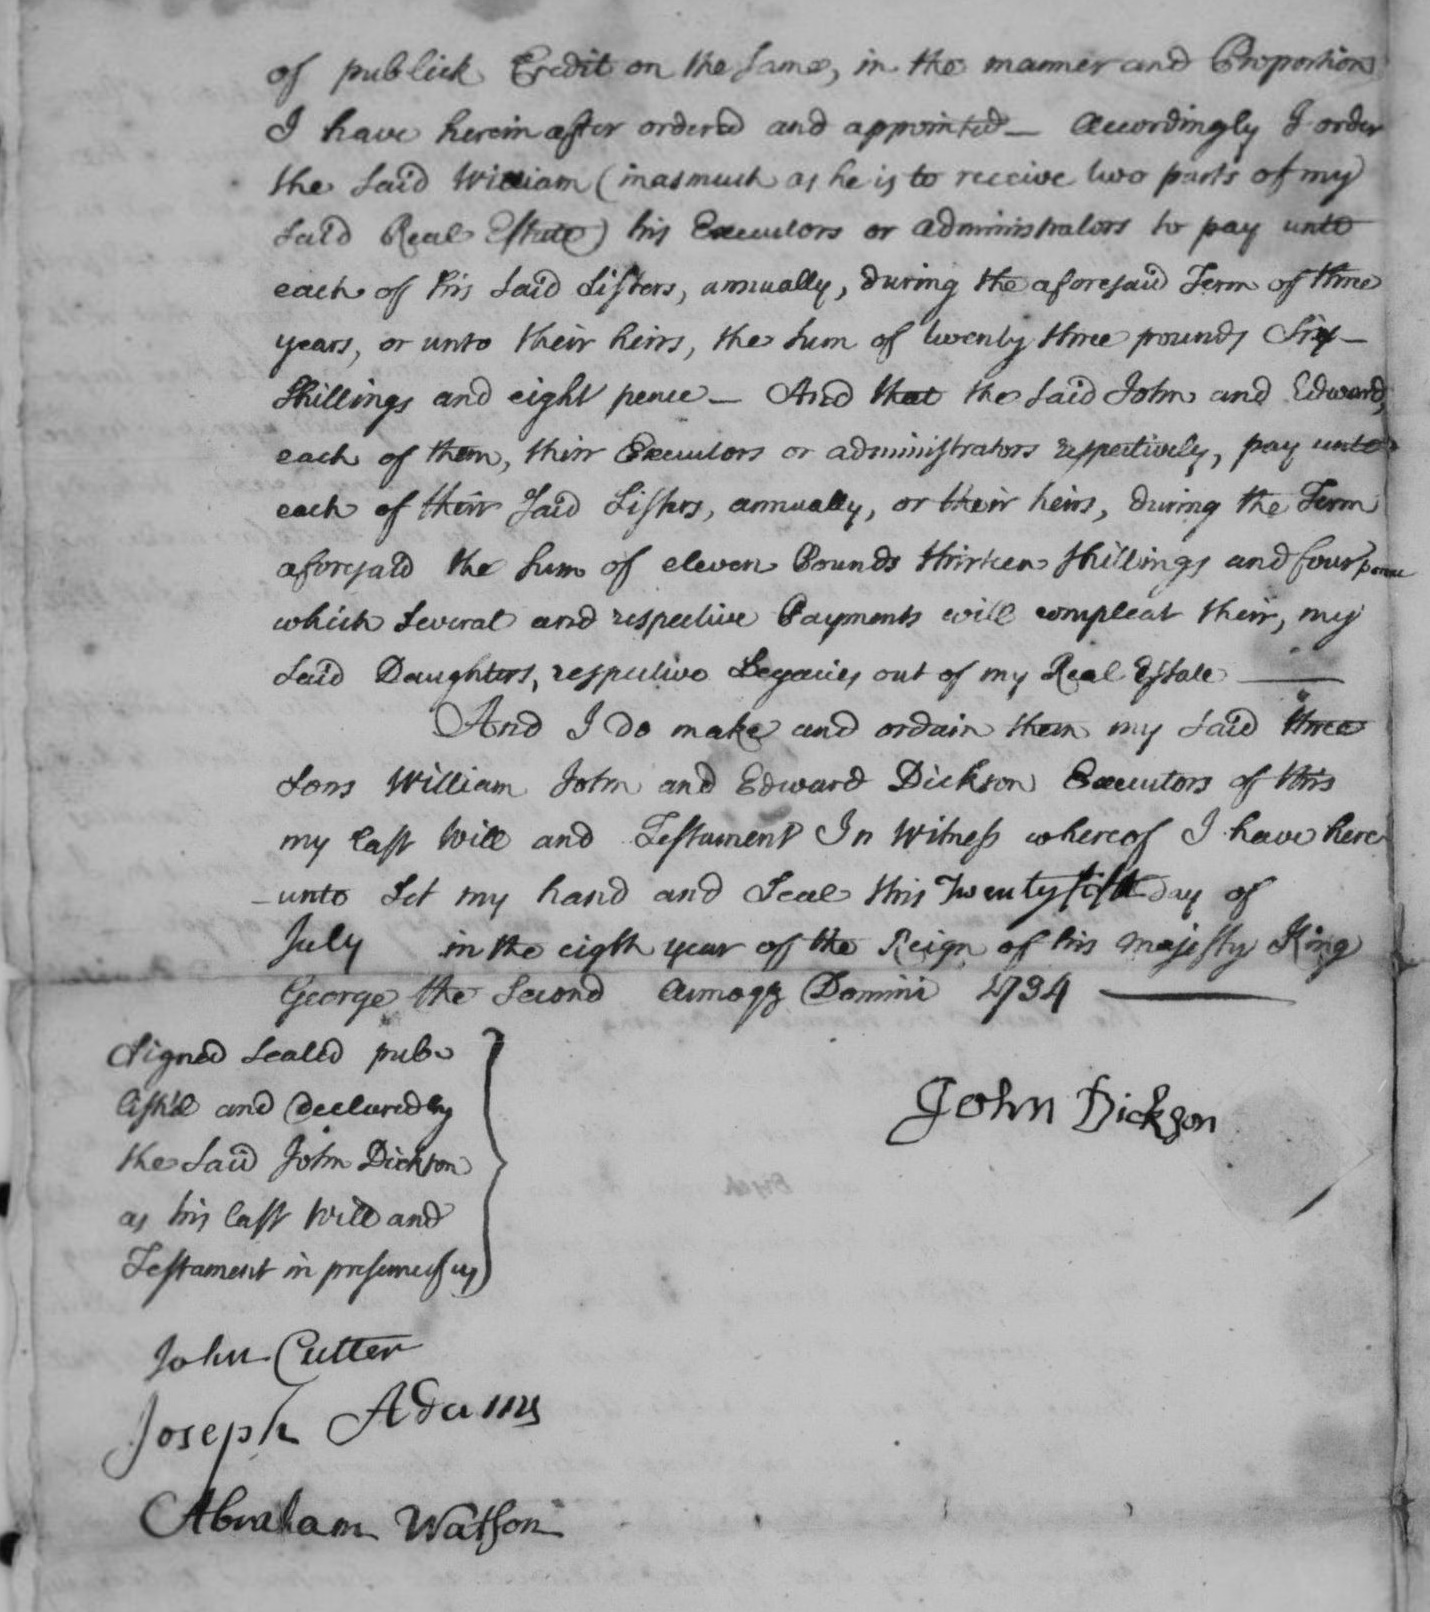 of publick Credit on the Same, in the manner and Proportion
I have herein after ordered and appointed — Accordingly I order
the Said William (inasmuch as he is to receive two parts of my
Said Real Estate) his Executors or administrators to pay unto
each of his Said Sisters, annually, during the aforesaid Term of three
years, or unto their heirs, the Sum of twenty three pounds Six —
Shillings and eight pence — And that the Said John and Edward,
each of them, their Executors or administrators respectively, pay unto
each of their Said Sisters, annually, or their heirs, during the Term
aforesaid the Sum of eleven Pounds thirteen Shillings and four pence
which Several and respective Payments will compleat their, my
Said Daughters, respective Legacies out of my Real Estate —
And I do make and ordain them my Said three
Sons William John and Edward Dickson Executors of this
my last Will and Testament In Witness whereof I have here
-unto Set my hand and Seal this Twenty fifth day of
July in the eigth year of the Reign of his Majesty King
George the Second Annoqz Domini 1734 —
Signed Sealed pub
lish'd and Declared by
the Said John Dickson
as his last Will and
Testament in presence of us
John Dickson
John Cutter
Joseph Adams
Abraham Watson